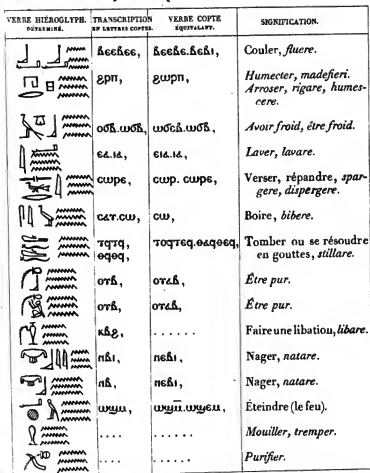 VERBE HIÉROGLYPH. TRANSCRIPTION VERBE COPTE SIGNIFICATION.
DÉTERMINÉ. EN LETTRES COPTES. ÉQUIVALANT.
ⲃⲉⲉⲃⲉⲉ, ⲃⲉⲉⲃⲉ.ⲃⲉⲃⲓ, Couler, fluere.
ϩⲣⲡ, ϩⲱⲣⲡ, Humecter, madefieri.
Arroser, rigare, humes-
cere.
Avoir froid, être froid.
ⲉⲓⲁ.ⲓⲁ, Laver, lavare.
ⲥⲱⲣⲉ, ⲥⲱⲣ. ⲥⲱⲣⲉ, Verser, répandre, spar-
gere, dispergere.
ⲥⲱ, Boire, bibere.
ⲧϥⲧϥ, ⲧⲟϥⲧⲉϥ.ⲑⲁϥⲑⲉϥ, Tomber ou se résoudre
ⲑϥⲑϥ, en gouttes, stillare.
ⲟⲩⲃ, ⲟⲩⲁⲃ, Être pur.
ⲟⲩⲃ, ⲟⲩⲁⲃ, Être pur.
ⲕⲃϩ, . . . . . . Faire une libation, libare.
ⲛⲃⲓ, ⲛⲉⲃⲓ, Nager, natare.
ⲛⲃ, ⲛⲉⲃⲓ, Nager, natare.
ⲱϣⲙ, ⲱϣⲙ̄.ⲱϣⲉⲙ, Éteindre (le feu).
. . . . . . . . . Mouiller, tremper.
. . . . . . . . Purifier.